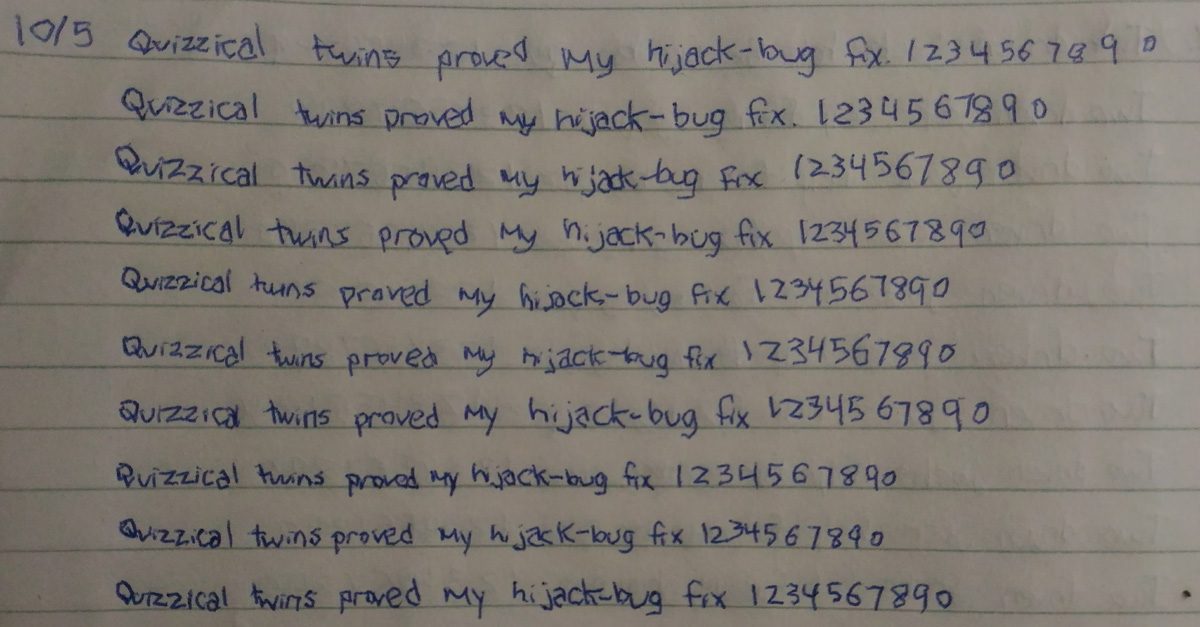 10/5 Quizzical twins proved my hijack-bug fix. 1234567890
Quizzical twins proved my hijack-bug fix. 1234567890
Quizzical twins proved my hijack-bug fix 1234567890
Quizzical twins proved my hijack-bug fix 1234567890
Quizzical twins proved my hijack-bug fix 1234567890
Quizzical twins proved my hijack-bug fix 1234567890
Quizzical twins proved my hijack-bug fix 1234567890
Quizzical twins proved my hijack-bug fix 1234567890
Quizzical twins proved my hijack-bug fix 1234567890
Quizzical twins proved my hijack-bug fix 1234567890